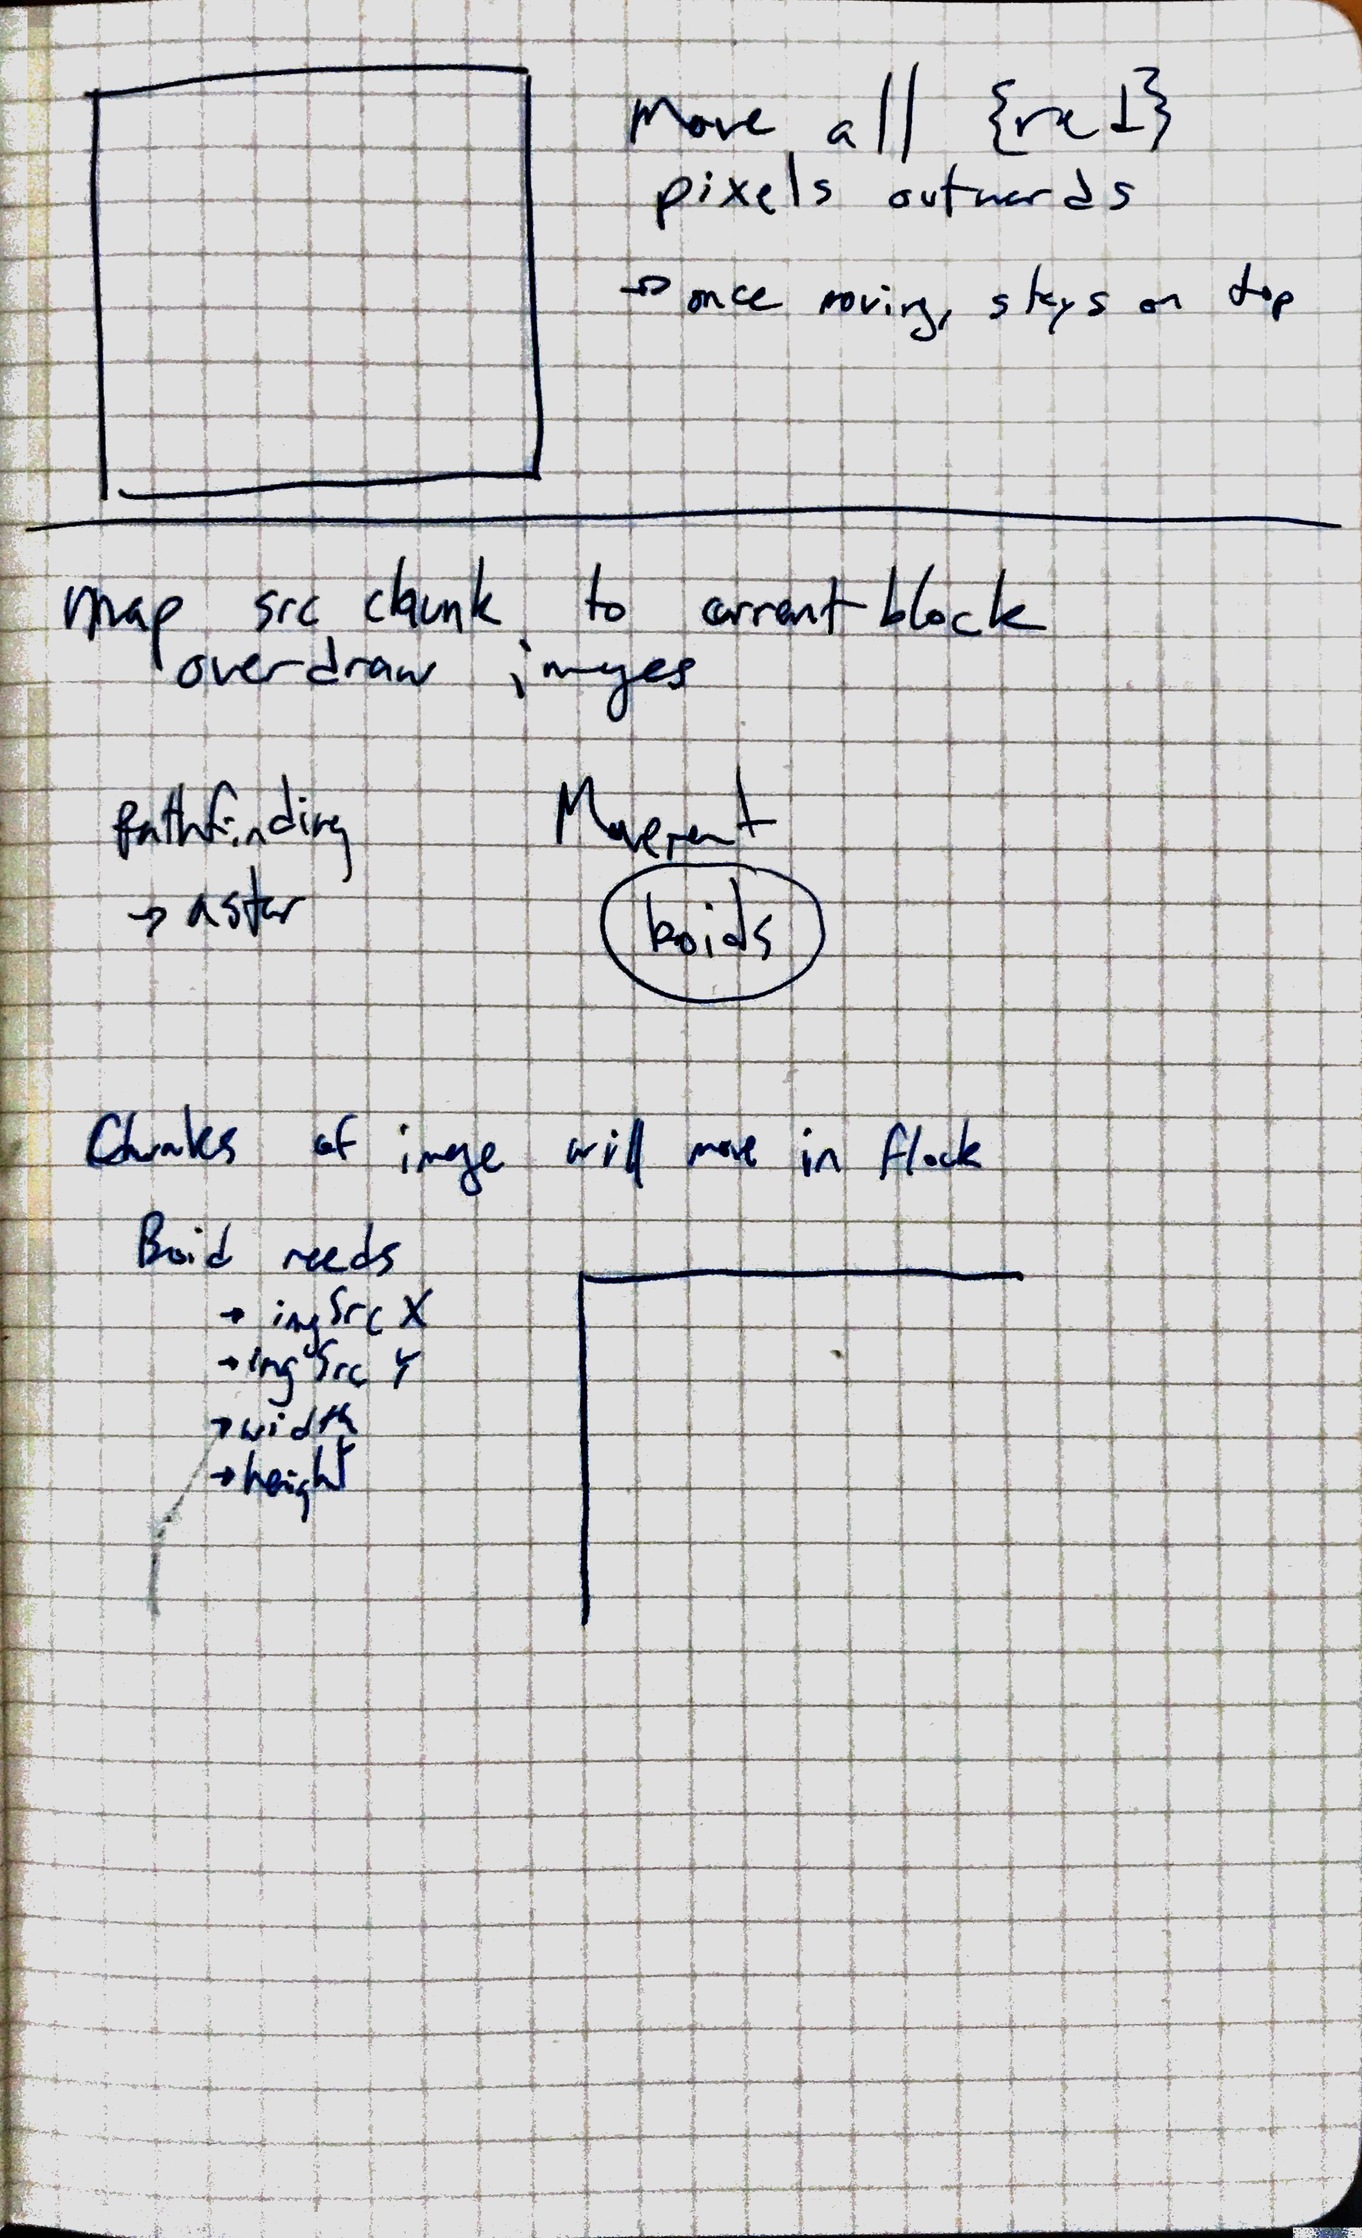 Move all {red}
pixels outwards
→ once moving, stays on top
map src chunk to current block
overdraw images
Pathfinding
→ astar
Movement
boids
Chunks of image will move in flock
Boid needs
→ imgSrc X
→ imgSrc Y
→ width
→ height